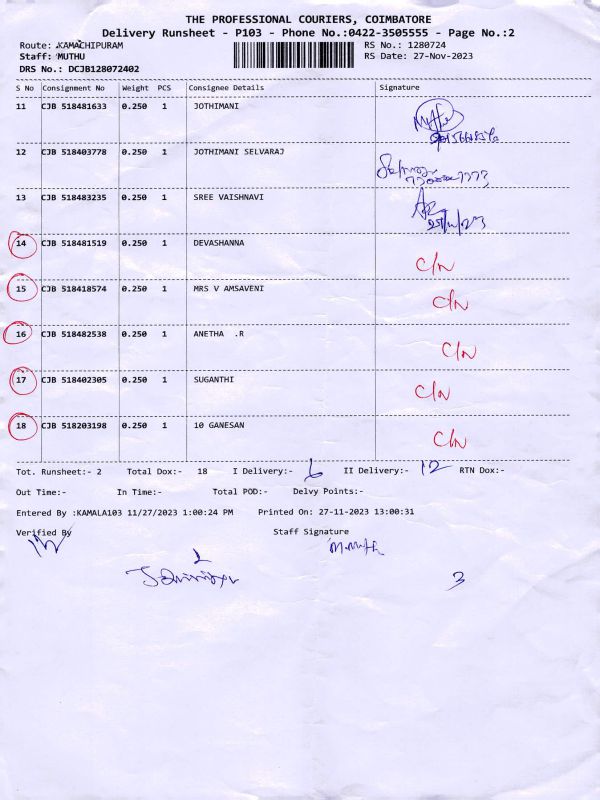 THE PROFESSIONAL COURIERS, COIMBATORE
Delivery Runsheet - P103 - Phone No.:0422-3505555 - Page No.:2
Route: KAMACHIPURAM RS No.: 1280724
Staff: MUTHU RS Date: 27-Nov-2023
DRS No.: DCJB128072402
S No Consignment No Weight PCS Consignee Details Signature
11 CJB 518481633 0.250 1 JOTHIMANI
12 CJB 518403778 0.250 1 JOTHIMANI SELVARAJ
13 CJB 518483235 0.250 1 SREE VAISHNAVI
14 CJB 518481519 0.250 1 DEVASHANNA C/N
15 CJB 518418574 0.250 1 MRS V AMSAVENI C/N
16 CJB 518482538 0.250 1 ANETHA .R C/N
17 CJB 518402305 0.250 1 SUGANTHI C/N
18 CJB 518203198 0.250 1 10 GANESAN C/N
Tot. Runsheet:- 2 Total Dox:- 18 I Delivery:- 6 II Delivery:- 12 RTN Dox:-
Out Time:- In Time:- Total POD:- Delvy Points:-
Entered By :KAMALA103 11/27/2023 1:00:24 PM Printed On: 27-11-2023 13:00:31
Verified By Staff Signature
2
3